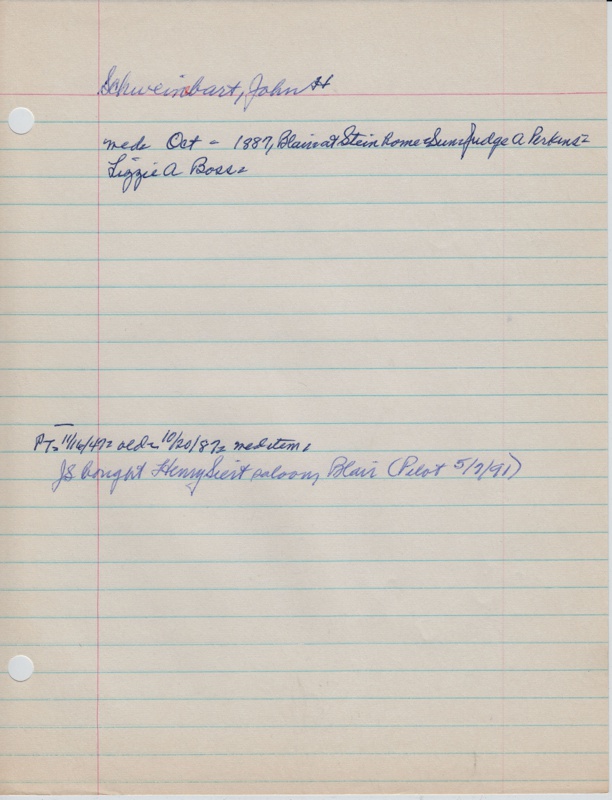 Schweinbart, John H
wed= Oct = 1887, Blair at Stein Home = Sun = Judge A Perkins =
Lizzie A Boss =
PT= 11/16/47= old= 10/20/87= wed item =
JS bought Henry Siert saloon, Blair (Pilot 5/7/91)